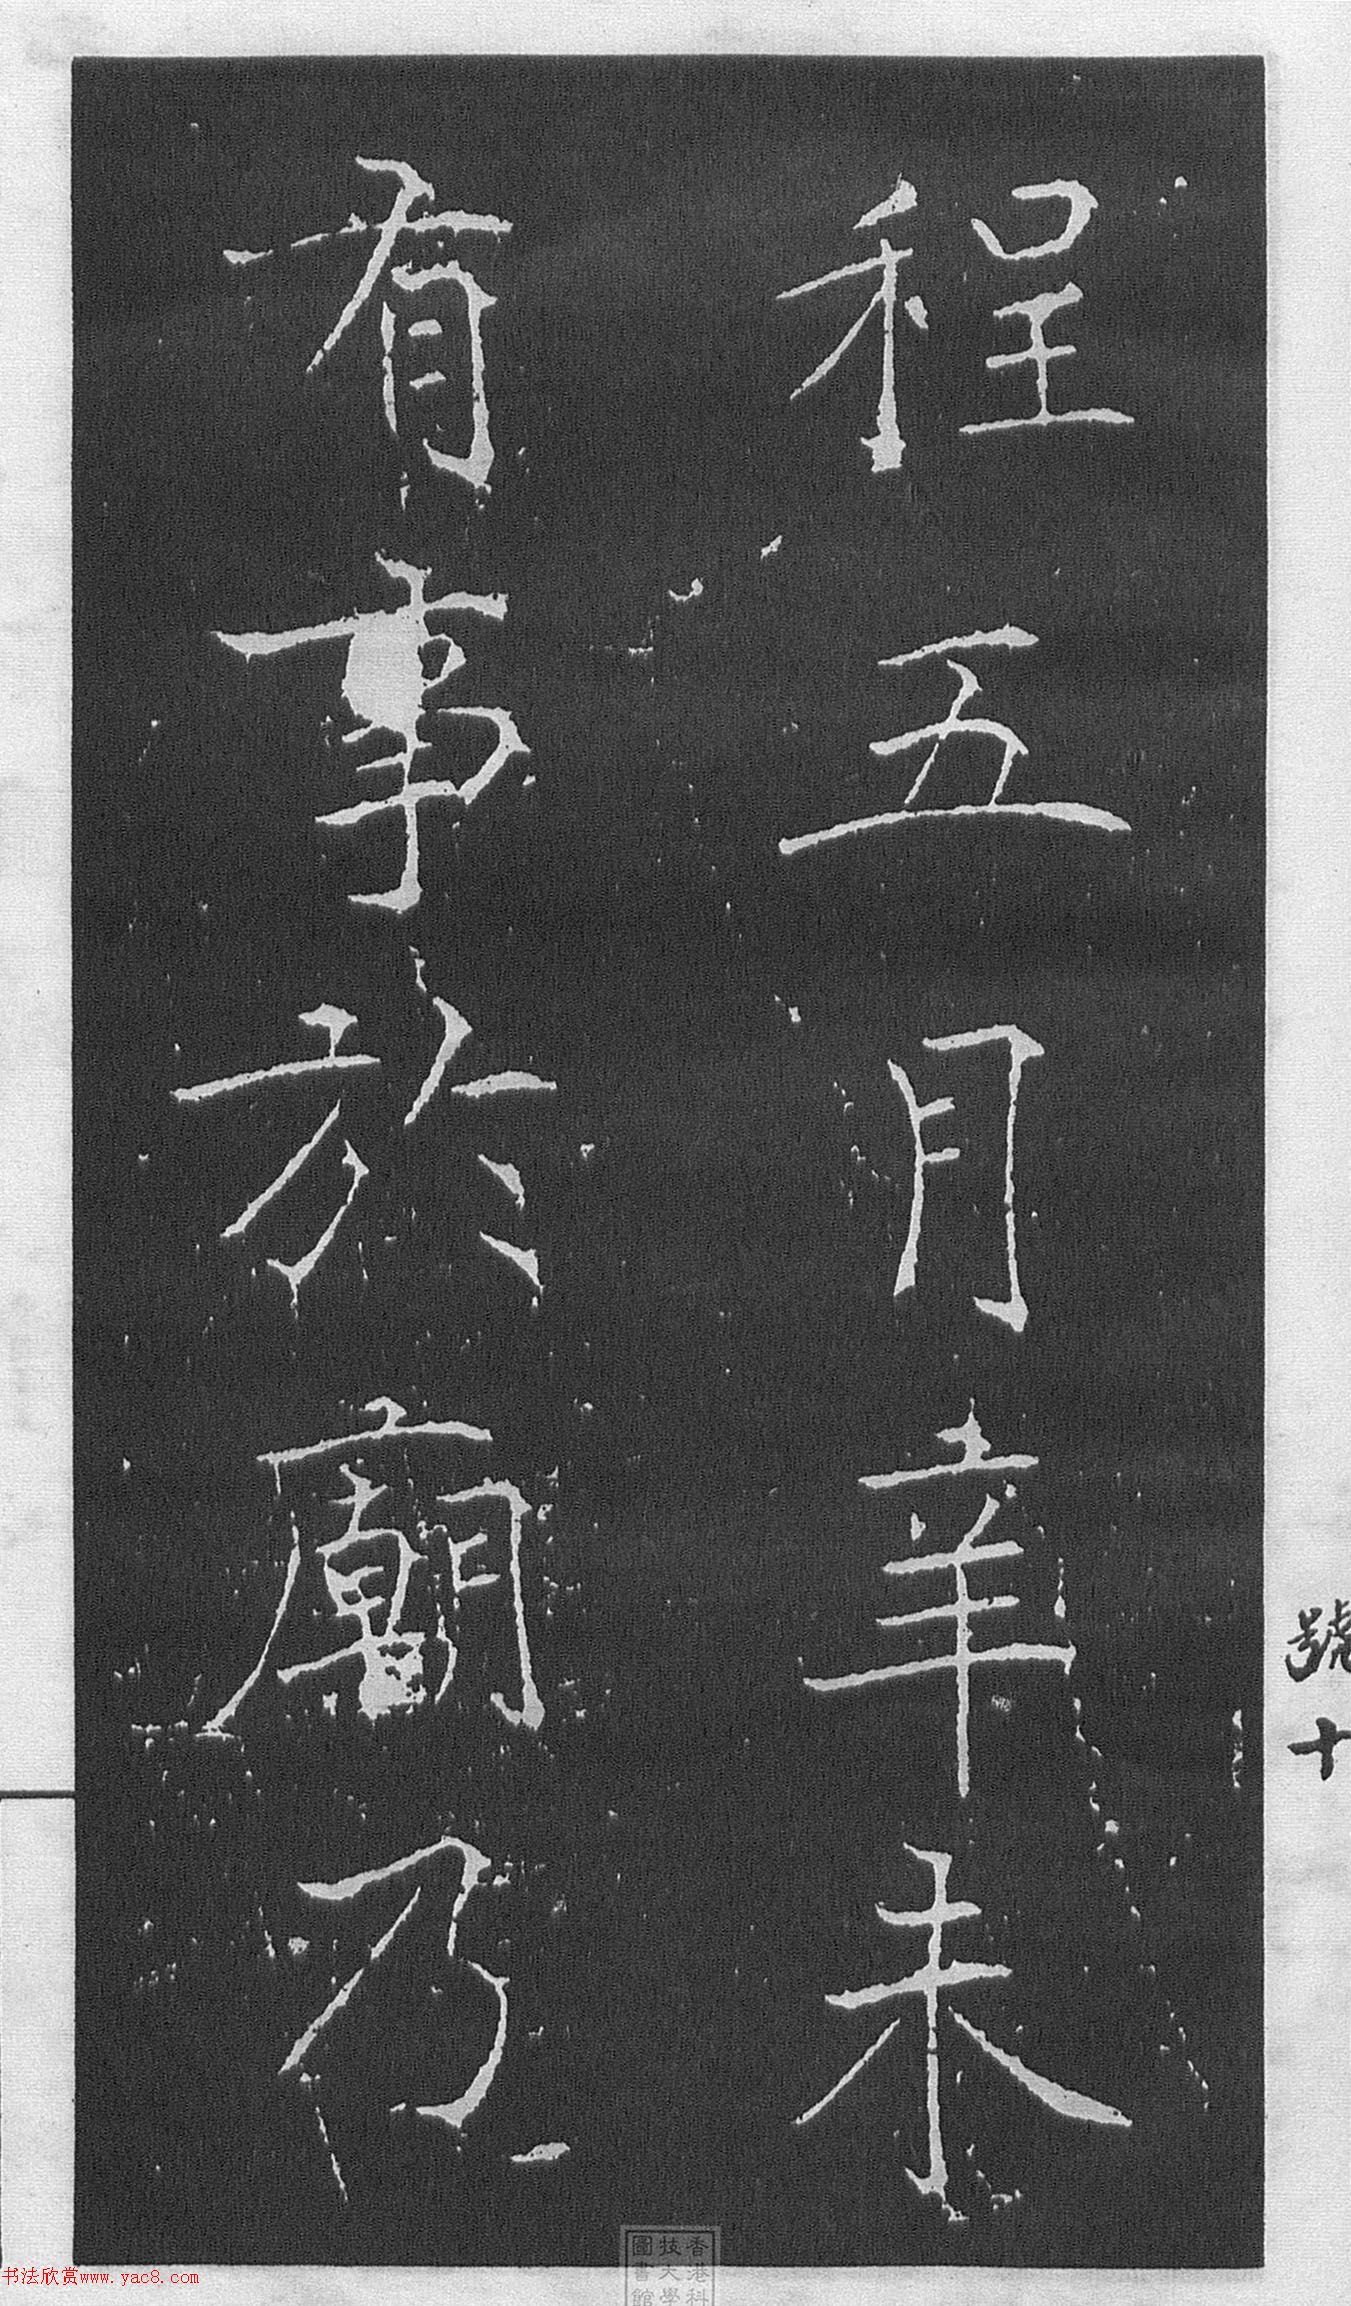 程五月辛未
有事於廟乃
號十
香港科
技大學
圖書館
书法欣赏www.yac8.com